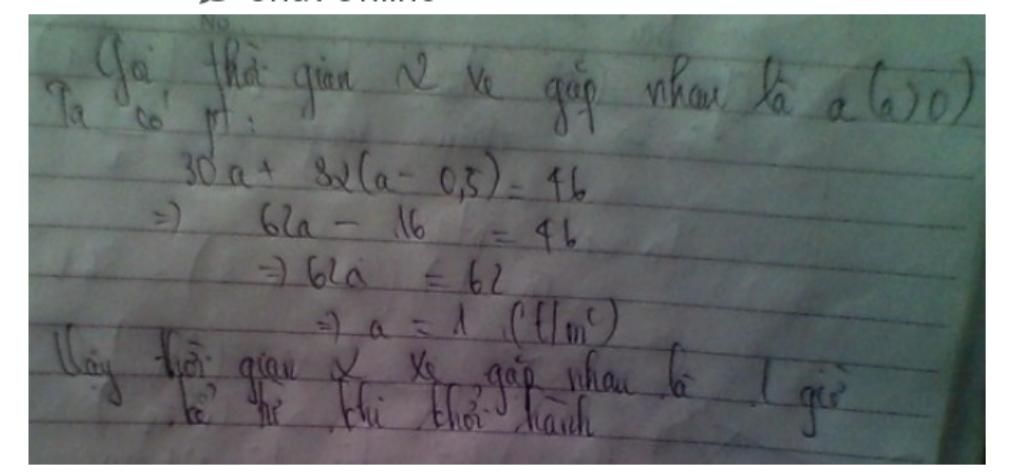 Gọi thời gian 2 xe gặp nhau là a (a>0)
Ta có pt:
30a + 32(a - 0,5) = 46
=) 62a - 16 = 46
=) 62a = 62
=) a = 1 (t/m^c)
Vậy thời gian 2 xe gặp nhau là 1 giờ
kể từ khi khởi hành